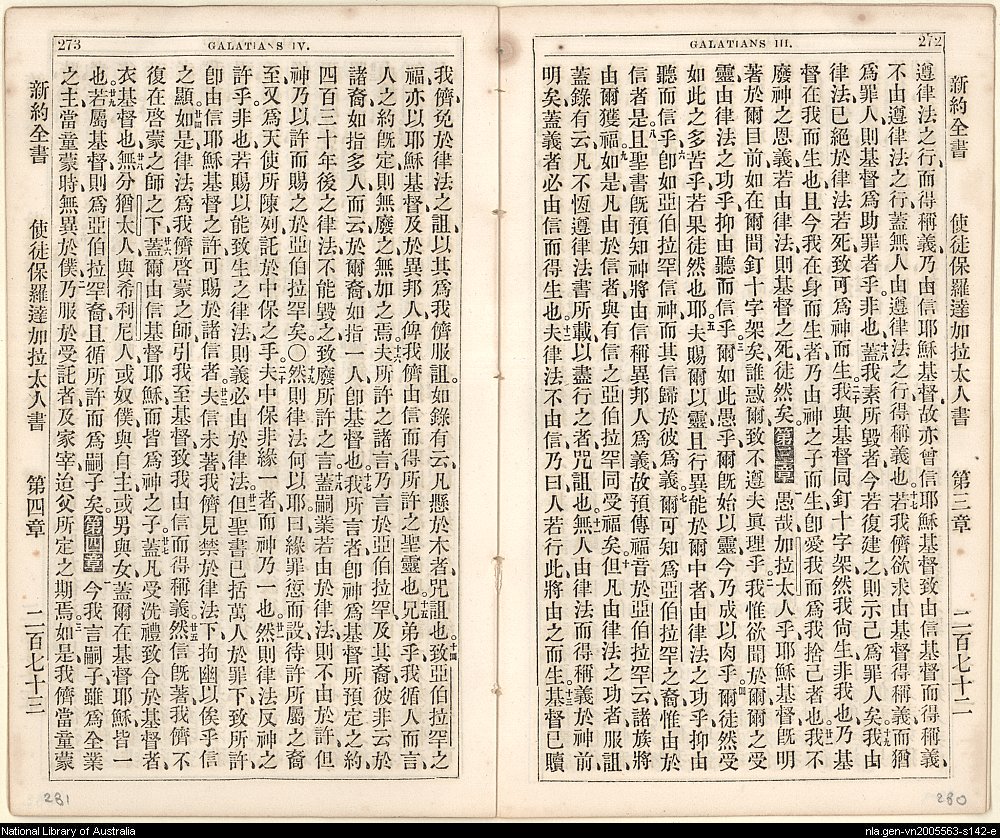 272
GALATIANS III.
新約全書 使徒保羅達加拉太人書 第三章 二百七十二
遵律法之行、而得稱義、乃由信耶穌基督、故亦曾信耶穌基督、致由信基督而得稱義、
不由遵律法之行、蓋無人由遵律法之行得稱義也、十七若我儕欲求由基督得稱義、而猶
爲罪人、則基督爲助罪者乎、非也、十八蓋我素所毀者、今若復建之、則示己爲罪人矣、十九我由
律法已絕於律法若死、致可爲神而生、二十我與基督同釘十字架、然我尚生、非我也、乃基
督在我而生也、且今我在身而生者、乃由神之子而生、卽愛我而爲我捨己者也、廿一我不
廢神之恩、義若由律法、則基督之死徒然矣、第三章一愚哉加拉太人乎、耶穌基督旣明
著於爾目前、如在爾間釘十字架矣、誰惑爾、致不遵夫眞理乎、二我惟欲聞於爾、爾之受
靈、由律法之功乎、抑由聽而信乎、三爾如此愚乎、爾旣始以靈、今乃成以肉乎、四爾徒然受
如此之多苦乎、若果徒然也耶、五夫賜爾以靈、且行異能於爾中者、由律法之功乎、抑由
聽而信乎、六卽如亞伯拉罕信神、而其信歸於彼爲義、七爾可知爲亞伯拉罕之裔、惟由於
信者是、八且聖書旣預知神將由信稱異邦人爲義、故預傳福音於亞伯拉罕云、諸族將
由爾獲福、九如是凡由於信者、與有信之亞伯拉罕同受福矣、十但凡由律法之功者、服詛、
蓋錄有云、凡不恆遵律法書所載、以盡行之者、咒詛也、十一無人由律法而得稱義於神前、
明矣、蓋義者必由信而得生也、十二夫律法不由信、乃曰、人若行此、將由之而生、十三基督已贖
273
GALATIANS IV.
我儕、免於律法之詛、以其爲我儕服詛、如錄有云、凡懸於木者、咒詛也、十四致亞伯拉罕之
福、亦以耶穌基督及於異邦人、俾我儕由信而得所許之聖靈也、十五兄弟乎、我循人而言、
人之約旣定、則無廢之、無加之焉、十六夫所許之諸言、乃言於亞伯拉罕及其裔、彼非云於
諸裔、如指多人、而云於爾裔、如指一人、卽基督也、十七我所言者、卽神爲基督所預定之約、
四百三十年後之律法、不能毀之、致廢所許之言、十八蓋嗣業若由於律法、則不由於許、但
神乃以許而賜之於亞伯拉罕矣、〇十九然則律法何以耶、曰、緣罪愆而設、待許所屬之裔
至、又爲天使所陳列、託於中保之手、二十夫中保非緣一者、而神乃一也、廿一然則律法反神之
許乎、非也、若賜以能致生之律法、則義必由於律法、廿二但聖書已括萬人於罪下、致所許
卽由信耶穌基督之許、可賜於諸信者、廿三夫信未著、我儕見禁於律法下、拘幽以俟乎信
之顯、廿四如是律法爲我儕啓蒙之師、引我至基督、致我由信而得稱義、廿五然信旣著、我儕不
復在啓蒙之師之下、廿六蓋爾由信基督耶穌、而皆爲神之子、廿七蓋凡受洗禮致合於基督者、
衣基督也、廿八無分猶太人與希利尼人、或奴僕與自主、或男與女、蓋爾在基督耶穌皆一
也、廿九若屬基督、則爲亞伯拉罕裔、且循所許而爲嗣子矣、第四章一今我言、嗣子雖爲全業
之主、當童蒙時、無異於僕、二乃服於受託者、及家宰、迨父所定之期焉、三如是我儕當童蒙
新約全書 使徒保羅達加拉太人書 第四章 二百七十三
281
280
National Library of Australia
nla.gen-vn2005563-s142-e